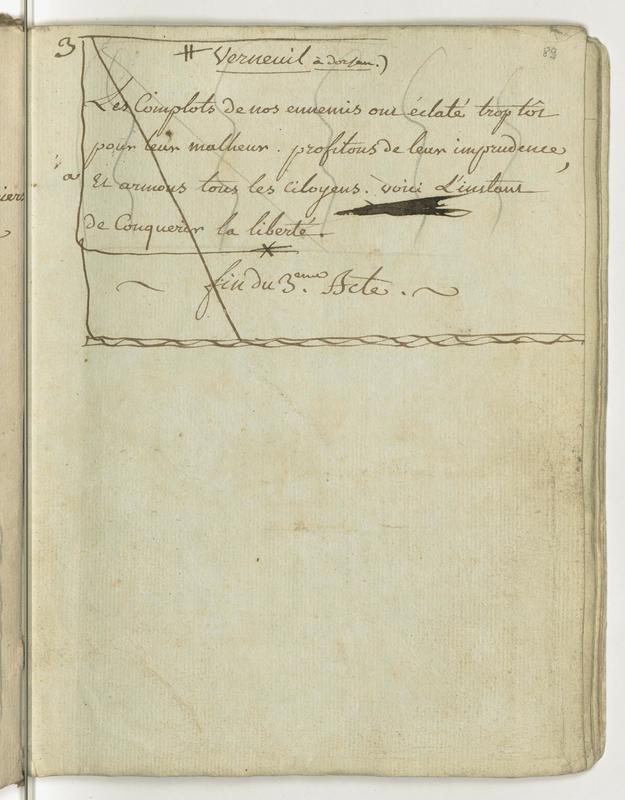 3
89
# Verneuil à dorsan.)
Les Complots de nos ennemis ont éclaté trop tôt
pour leur malheur. profitons de leur imprudence,
a Et armons tous les citoyens. voici L'instant
de Conquerir la liberté.
~ fin du 3.eme Acte. ~
iers